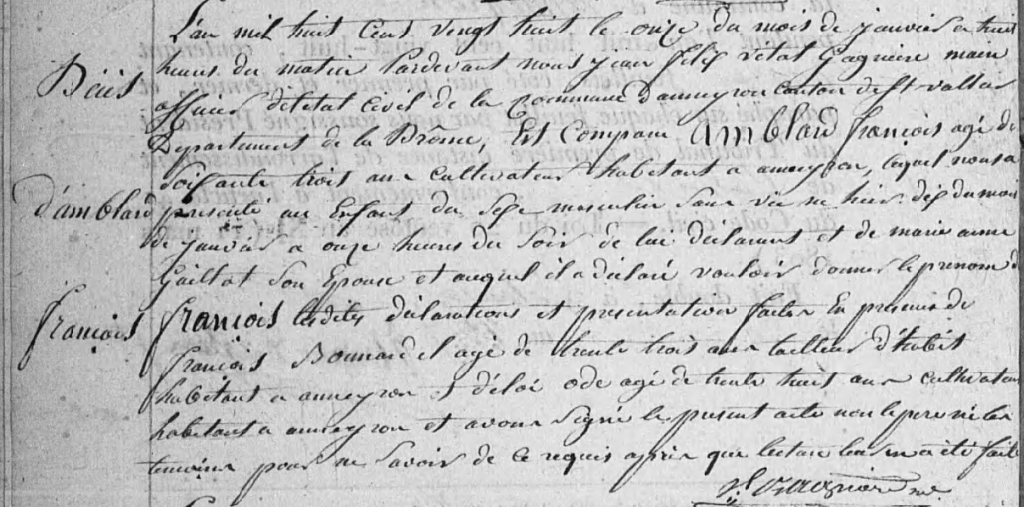 L'an mil huit cent vingt huit le onze du mois de janvier a huit
heures du matin Pardevant nous jean felix vital Gagnière maire
Décès
officier d'état civil de la Commune d'anneyron canton de St vallier
Département de la Drôme, Est Comparu Amblard françois agé de
soissante trois ans cultivateur habitant a anneyron, lequel nous a
d'amblard
présenté un Enfant du sexe masculin sans vie né hier dix du mois
de janvier a onze heures du soir de lui déclarant et de marie anne
Gaillat son Epouse et auquel il a déclaré vouloir donner le prénom de
françois
françois lesdites déclarations et présentation faites En présence de
françois Bonnardel agé de trente trois ans tailleur d'habit
habitant a anneyron et d'éloi ode agé de trente huit ans cultivateur
habitant a anneyron et avons signé le présent acte non le père ni les
temoins pour ne savoir de ce requis après que lecture leur en a été faite
Gagnière